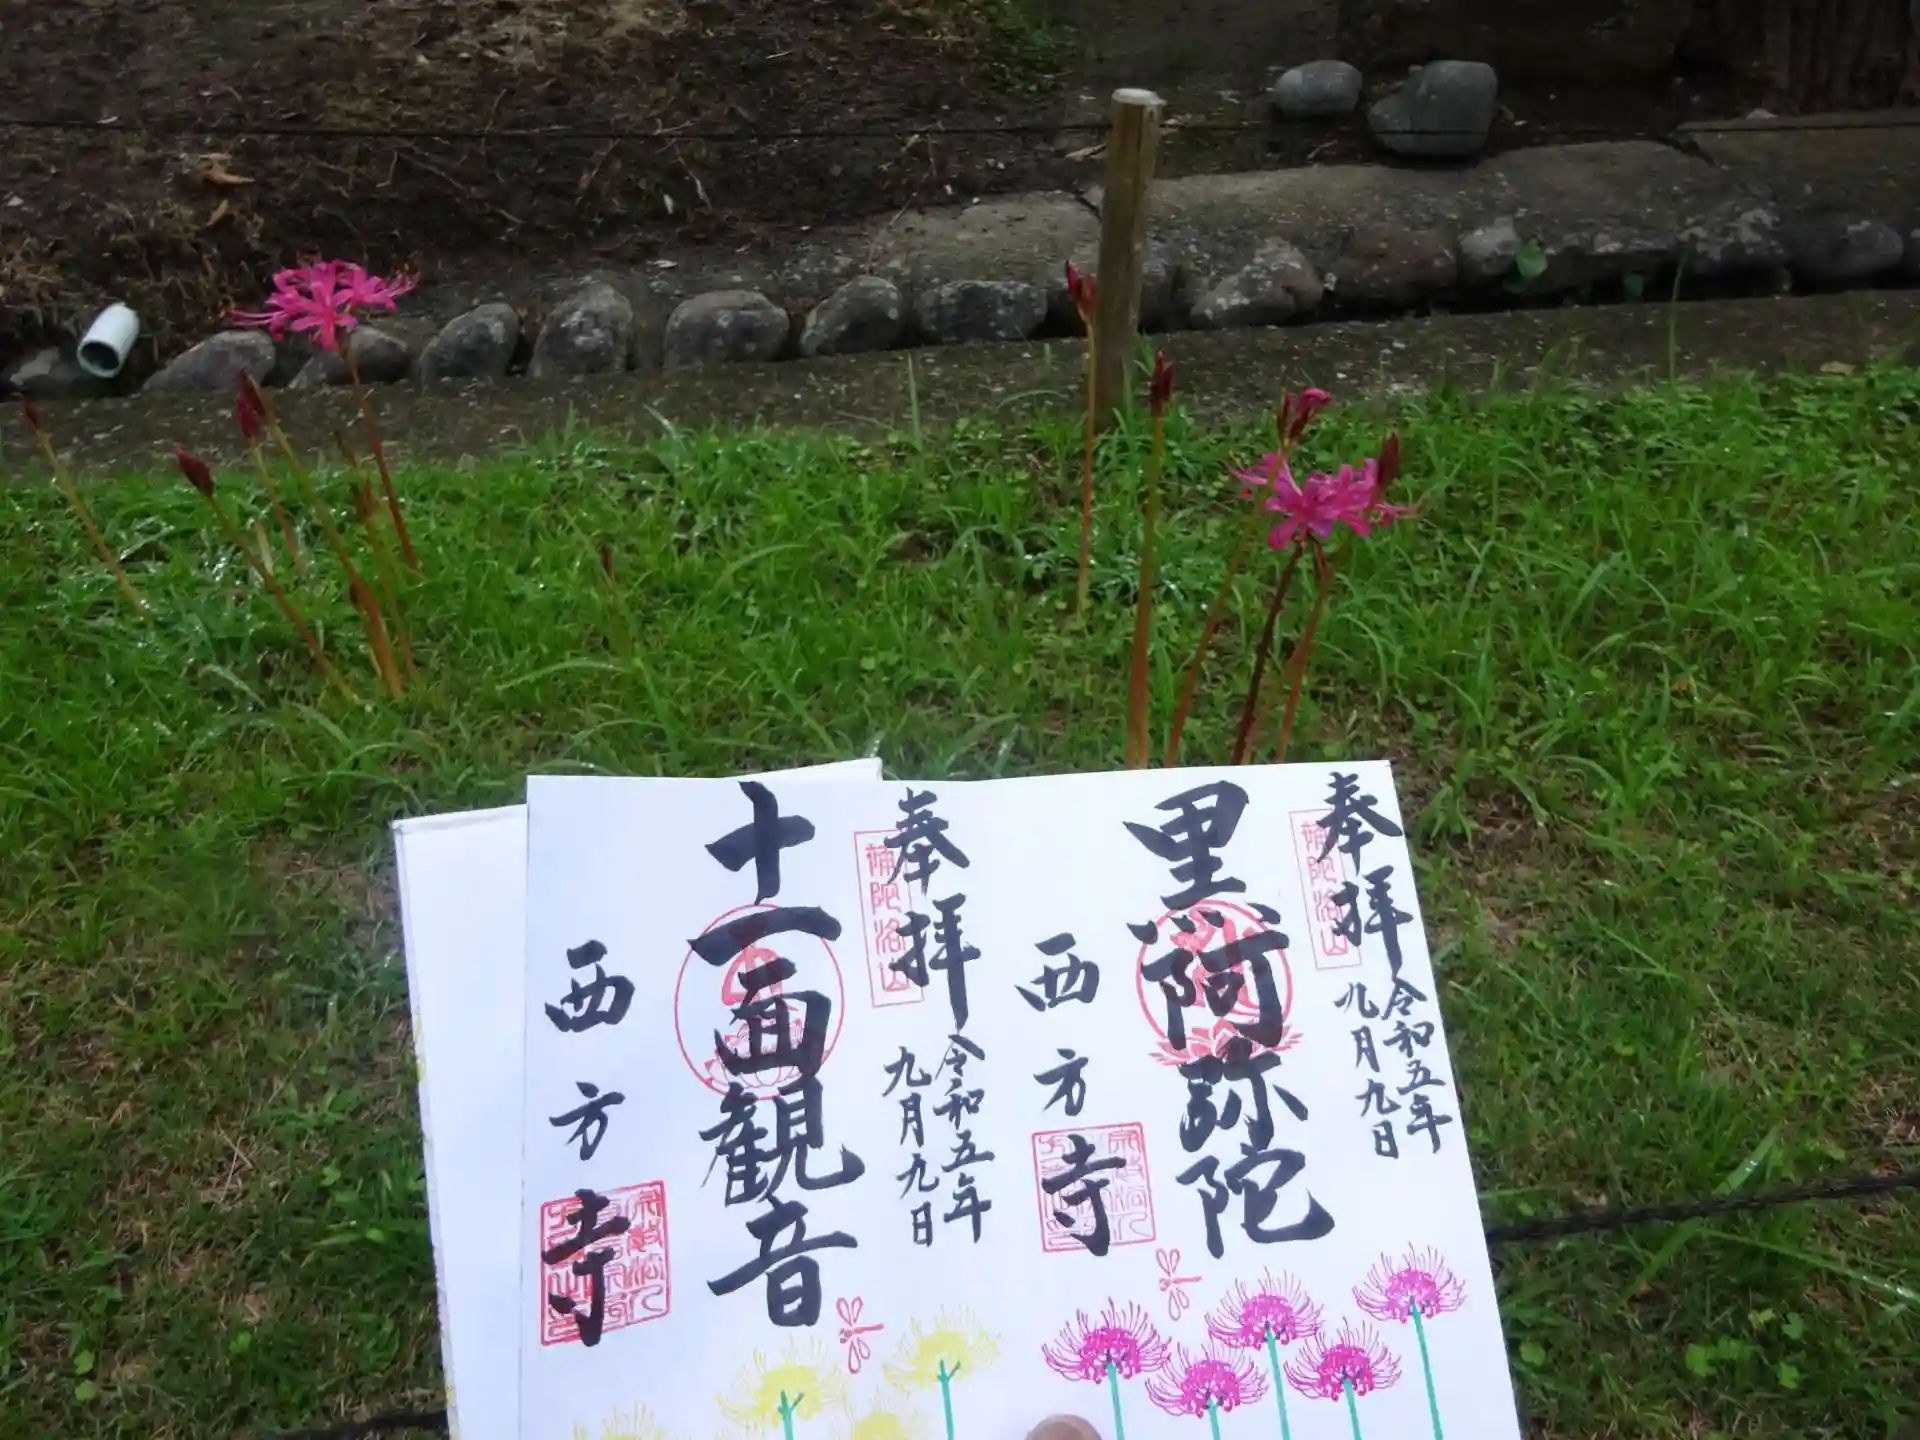 奉拝
補陀洛山
令和五年
九月九日
黒阿弥陀
西方寺
奉拝
補陀洛山
令和五年
九月九日
十一面観音
西方寺